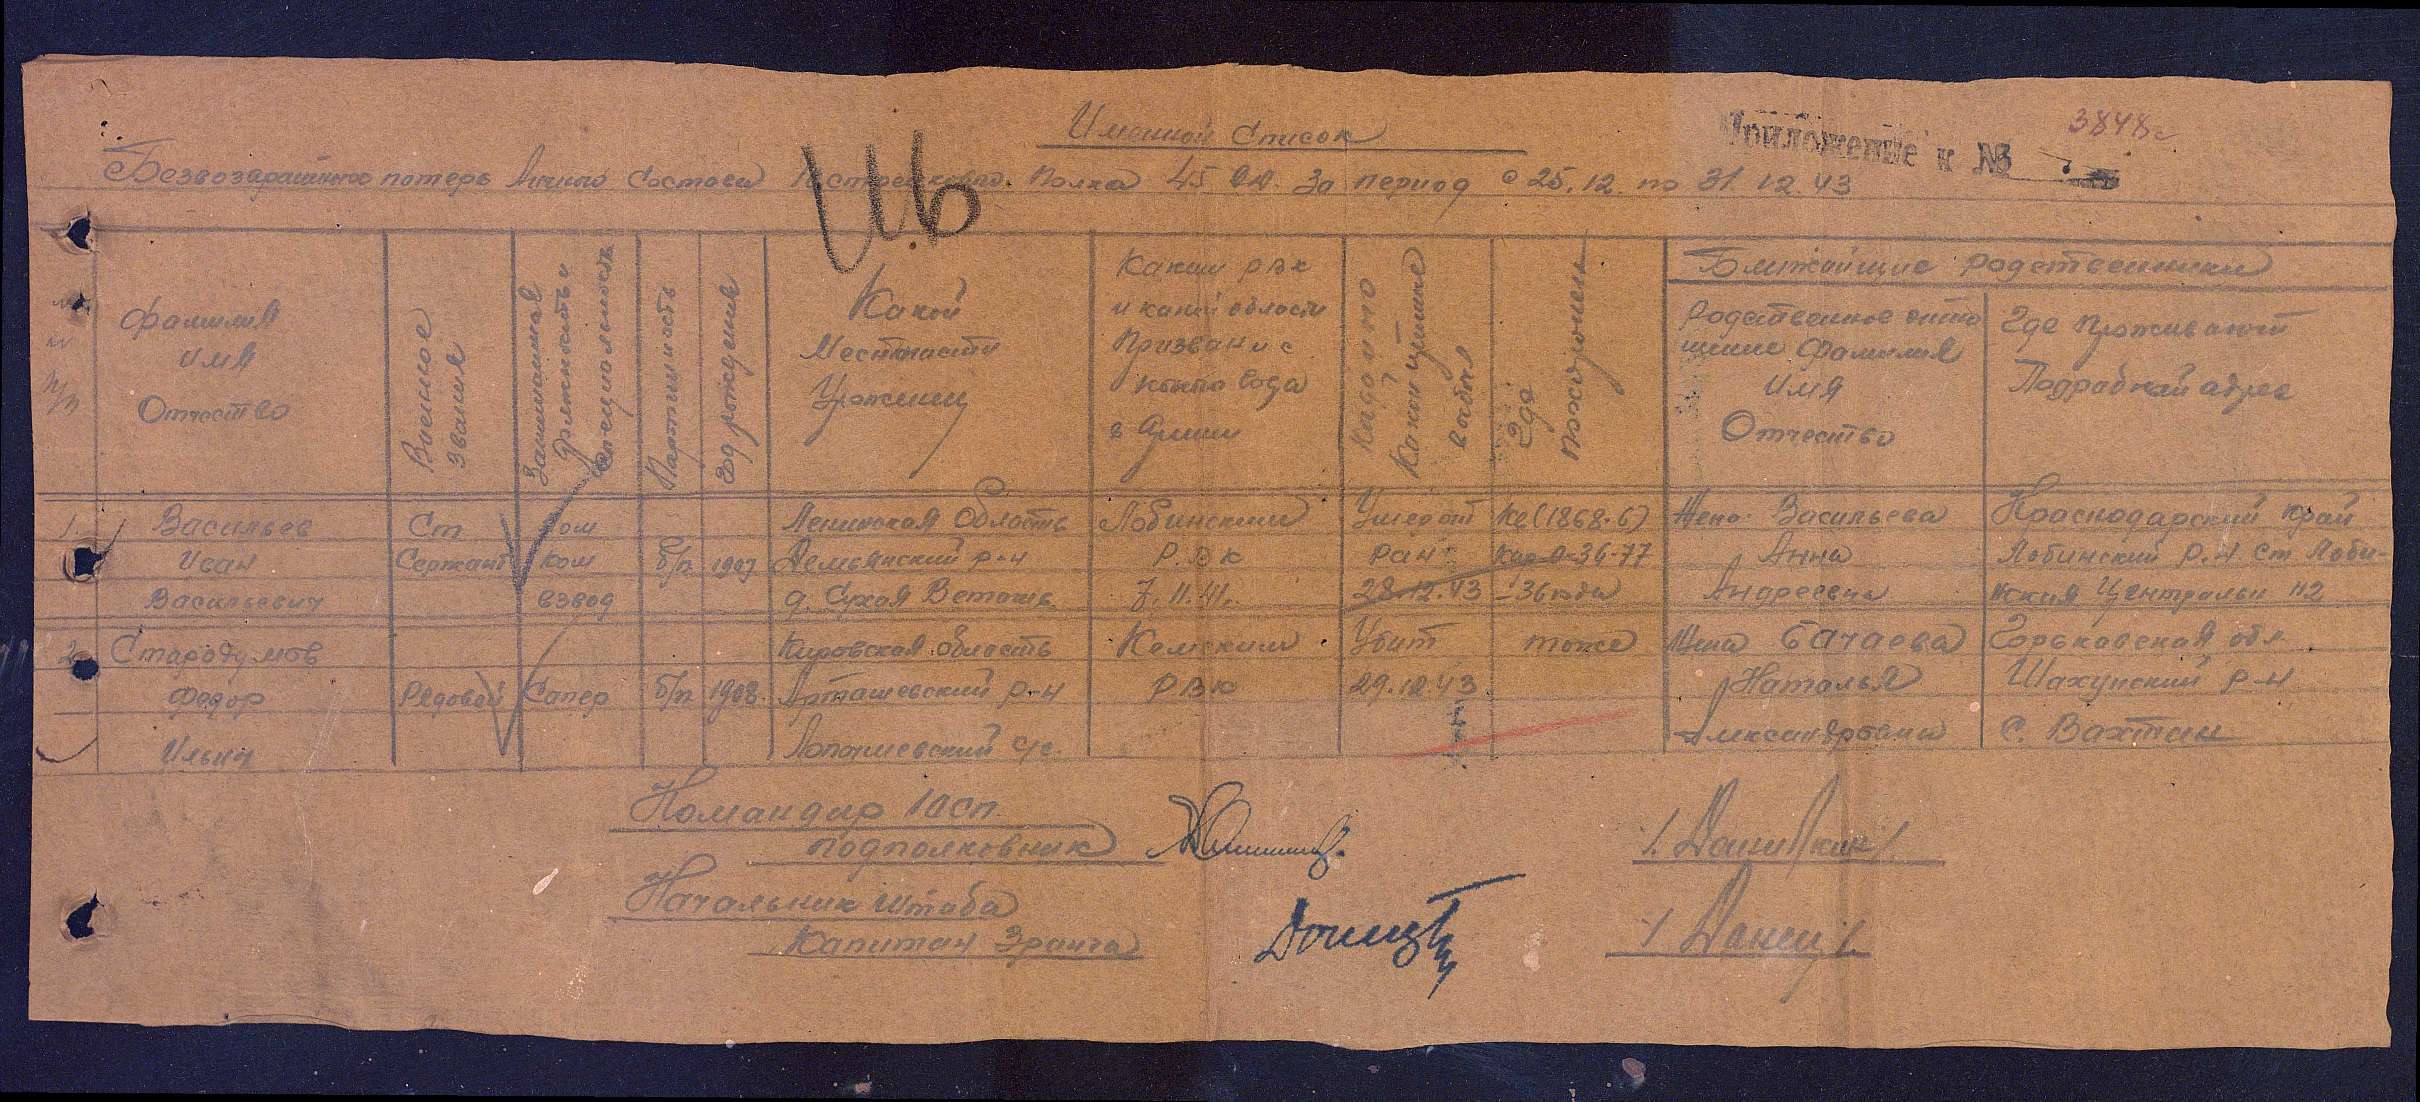 Именной Список
Приложение к №
3848с
Безвозвратных потерь Личного Состава 10 стрелкового Полка 45 С.Д. За период с 25.12. по 31.12.43
Шб
№ п/п
Фамилия
Имя
Отчество
Военное
Звание
Занимаемая
Должность и
Специальность
Партийность
Год рождения
Какой
Местности
Уроженец
Каким РВК
и какой области
Призван и с
какого года
в Армии
Когда и по
Какой причине
выбыл
Где
похоронен
Ближайшие Родственники
Родственное отно
шение Фамилия
Имя
Отчество
Где Проживают
Подробный адрес
1 Васильев Ст ком Ленинская Область Лобинским Умер от Кв (1868-6) Жена Васильева Краснодарский край
Исан Сержант ком б/п 1907 Демьянский р-н Р.В.К ран Кар 0-36-77 Анна Лобинский р.н ст Лоби-
Васильевич взвод д. Сухая Ветошь 7.11.41. 28.12.43 -36 года Андреевна нская Центральн 112
2 Стародумов Кировская область Кемским Убит тоже Жена Бачаева Горьковская обл
Федор Рядовой Сапер б/п 1908. р-н РВК 29.12.43 Наталья Шахунский р-н
Ильич с/с. Александровна с. Вахтан
Командир 10СП.
подполковник /.Данилкин/.
Начальник Штаба
Капитан /Донец/.